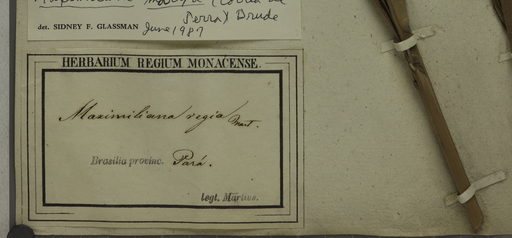 Maximiliana maripa (Correa da
Serra) Drude
det. SIDNEY F. GLASSMAN June 1987
HERBARIUM REGIUM MONACENSE.
Maximiliana regia Mart.
Brasilia provinc. Pará.
legt. Martius.